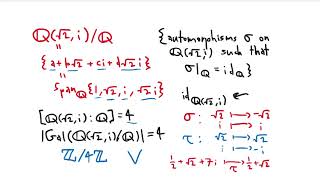 ℚ(√2, i)/ℚ
"
{a+b√2 + ci + d√2 i}
"
Span_ℚ{1, √2, i, √2 i}
[ℚ(√2, i) : ℚ] = 4
|Gal(ℚ(√2, i)/ℚ)| = 4
ℤ/4ℤ V
{automorphisms σ on
ℚ(√2, i) such that
σ|_ℚ = id_ℚ}
id_ℚ(√2, i) ←
σ: √2 ↦ -√2
i ↦ i
τ: √2 ↦ √2
i ↦ -i
½+√2+7i ↦_τ ½+√2